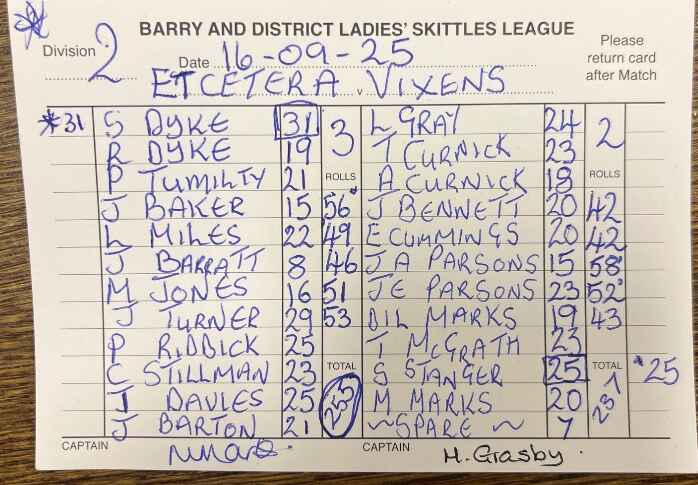 BARRY AND DISTRICT LADIES' SKITTLES LEAGUE
Division 2
Date 16-09-25
Please return card after Match
ETCETERA v VIXENS
*31 S DYKE 31 3 L GRAY 24 2
R DYKE 19 T CURNICK 23
P TUMILTY 21 ROLLS A CURNICK 18 ROLLS
J BAKER 15 56 J BENNETT 20 42
L MILES 22 49 E CUMMINGS 20 42
J BARRATT 8 46 J A PARSONS 15 58
M JONES 16 51 JE PARSONS 23 52
J TURNER 29 53 DIL MARKS 19 43
P RIDDICK 25 T McGRATH 23
C STILLMAN 23 TOTAL S STANGER 25 TOTAL *25
I DAVIES 25 255 M MARKS 20 237
J BARTON 21 ~SPARE~ 7
CAPTAIN CAPTAIN H. Grasby.